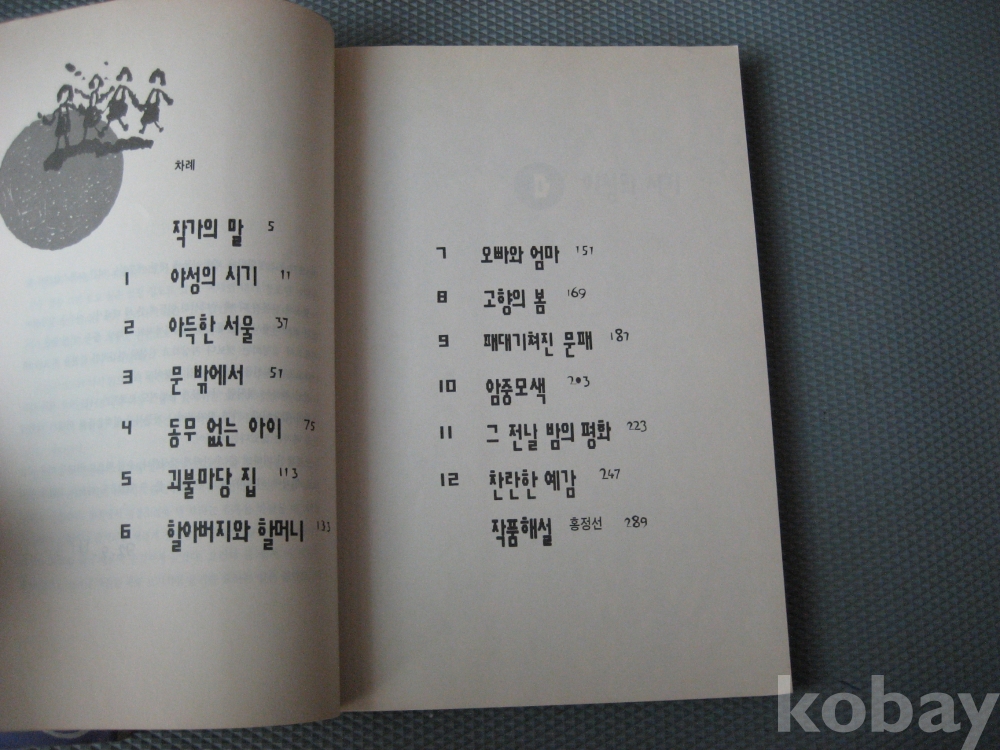 차례
작가의 말 5
1 야성의 시기 11
2 아득한 서울 37
3 문 밖에서 51
4 동무 없는 아이 75
5 괴불마당 집 113
6 할아버지와 할머니 133
7 오빠와 엄마 151
8 고향의 봄 169
9 패대기쳐진 문패 187
10 암중모색 203
11 그 전날 밤의 평화 223
12 찬란한 예감 247
작품해설 홍정선 289
kobay